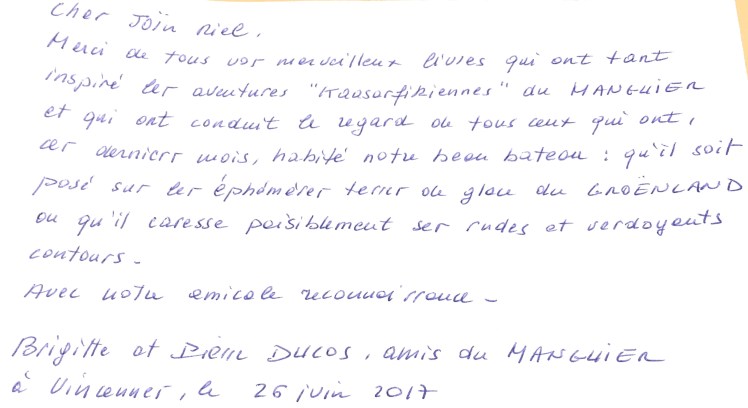 Cher Jöin Riel.
Merci de tous vos merveilleux livres qui ont tant
inspiré les aventures "Kaosarfikiennes" du MANGUIER
et qui ont conduit le regard de tous ceux qui ont,
ces derniers mois, habité notre beau bateau : qu'il soit
posé sur les éphémères terres de glace du GROËNLAND
ou qu'il caresse paisiblement ses rudes et verdoyants
contours -
Avec notre amicale reconnaissance -
Brigitte et Pierre DUCOS, amis du MANGUIER
à Vincennes, le 26 juin 2017